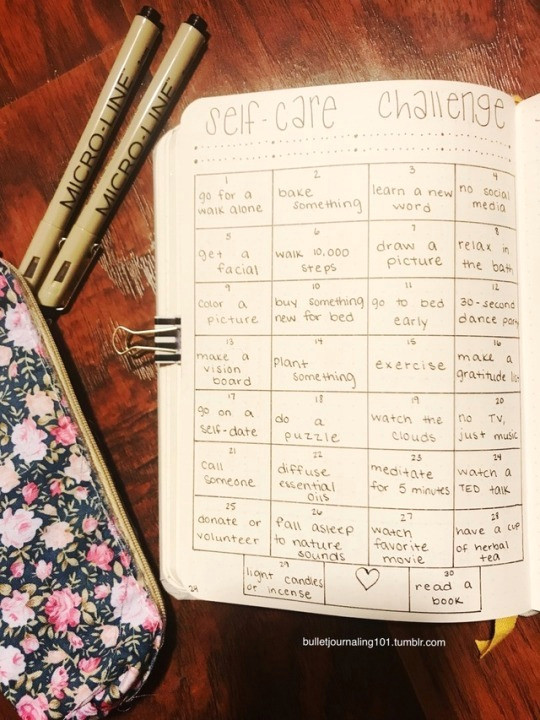 MICRO-LINE
MICRO-LINE™
self-care challenge
1
go for a
walk alone
2
bake
something
3
learn a new
word
4
no social
media
5
get a
facial
6
walk 10,000
steps
7
draw a
picture
8
relax in
the bath
9
color a
picture
10
buy something
new for bed
11
go to bed
early
12
30-second
dance party
13
make a
vision
board
14
plant
something
15
exercise
16
make a
gratitude list
17
go on a
self-date
18
do a
puzzle
19
watch the
clouds
20
no TV,
just music
21
call
someone
22
diffuse
essential
oils
23
meditate
for 5 minutes
24
watch a
TED talk
25
donate or
volunteer
26
fall asleep
to nature
sounds
27
watch
favorite
movie
28
have a cup
of herbal
tea
29
light candles
or incense
30
read a
book
29
bulletjournaling101.tumblr.com